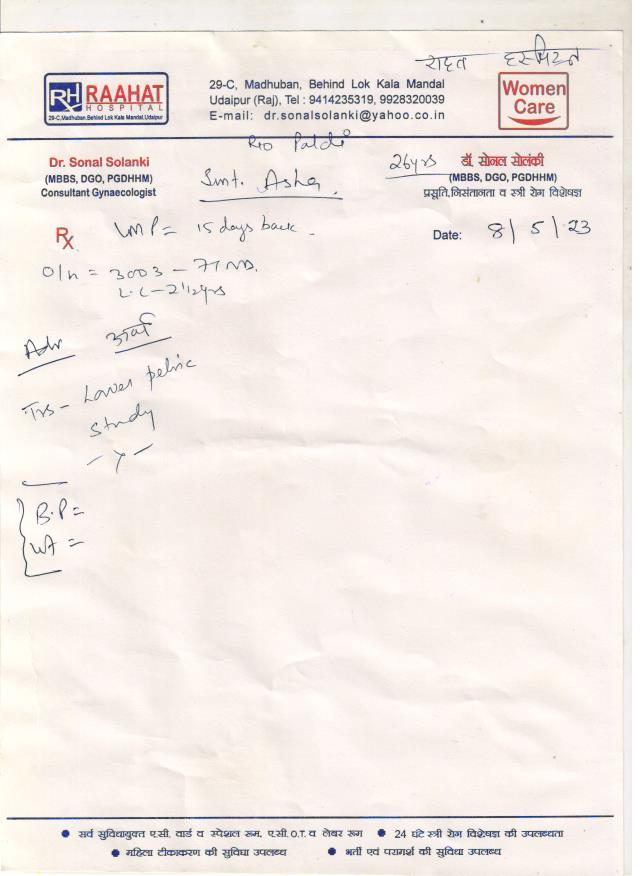 राहत हॉस्पिटल
RH RAAHAT
HOSPITAL
29-C,Madhuban,Behind Lok Kala Mandal,Udaipur
29-C, Madhuban, Behind Lok Kala Mandal
Udaipur (Raj), Tel : 9414235319, 9928320039
E-mail: dr.sonalsolanki@yahoo.co.in
Women
Care
R/o
Dr. Sonal Solanki
(MBBS, DGO, PGDHHM)
Consultant Gynaecologist
Smt. Asha
26yrs
डॉ. सोनल सोलंकी
(MBBS, DGO, PGDHHM)
प्रसूति,निसंतानता व स्त्री रोग विशेषज्ञ
Rx
LMP = 15 days back
Date: 8/5/23
O/H =
L.C - 2½yrs
Adv
TVS - Lower pelvic
study
B.P =
WT =
सर्व सुविधायुक्त ए.सी. वार्ड व स्पेशल रूम, ए.सी.O.T. व लेबर रूम 24 घंटे स्त्री रोग विशेषज्ञ की उपलब्धता
महिला टीकाकरण की सुविधा उपलब्ध भर्ती एवं परामर्श की सुविधा उपलब्ध